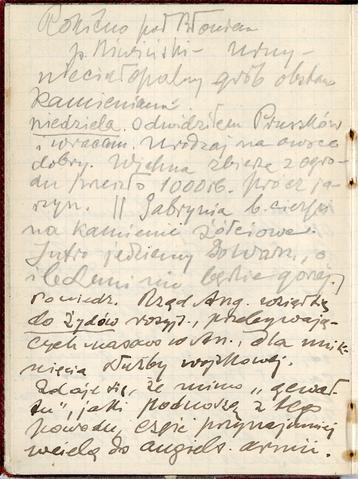 Rokitno pod Błoniem
p. Biwiński – urny –
nieciałopalny grób obstaw.
kamieniami.
niedziela. Odwidziłem Pruszków
i wracam. Urodzaj na owoce
dobry. Wychna zbierze z ogro-
du przeszło 1000 zł. prócz ja-
rzyn. || Gabrynia b. cierpi
na kamienie żółciowe.
Jutro jedziemy do Warsz., o
ile Zeni nie będzie gorzej.
Poniedz. Rząd Ang. wziął się
do Żydów rosyj., przebywają-
cych masowo w An., dla unik-
nięcia służby wojskowej.
Zdaje się, że mimo „gewał-
tu", jaki podnoszą z tego
powodu, część przynajmniej
wcielą do angiels. armii.